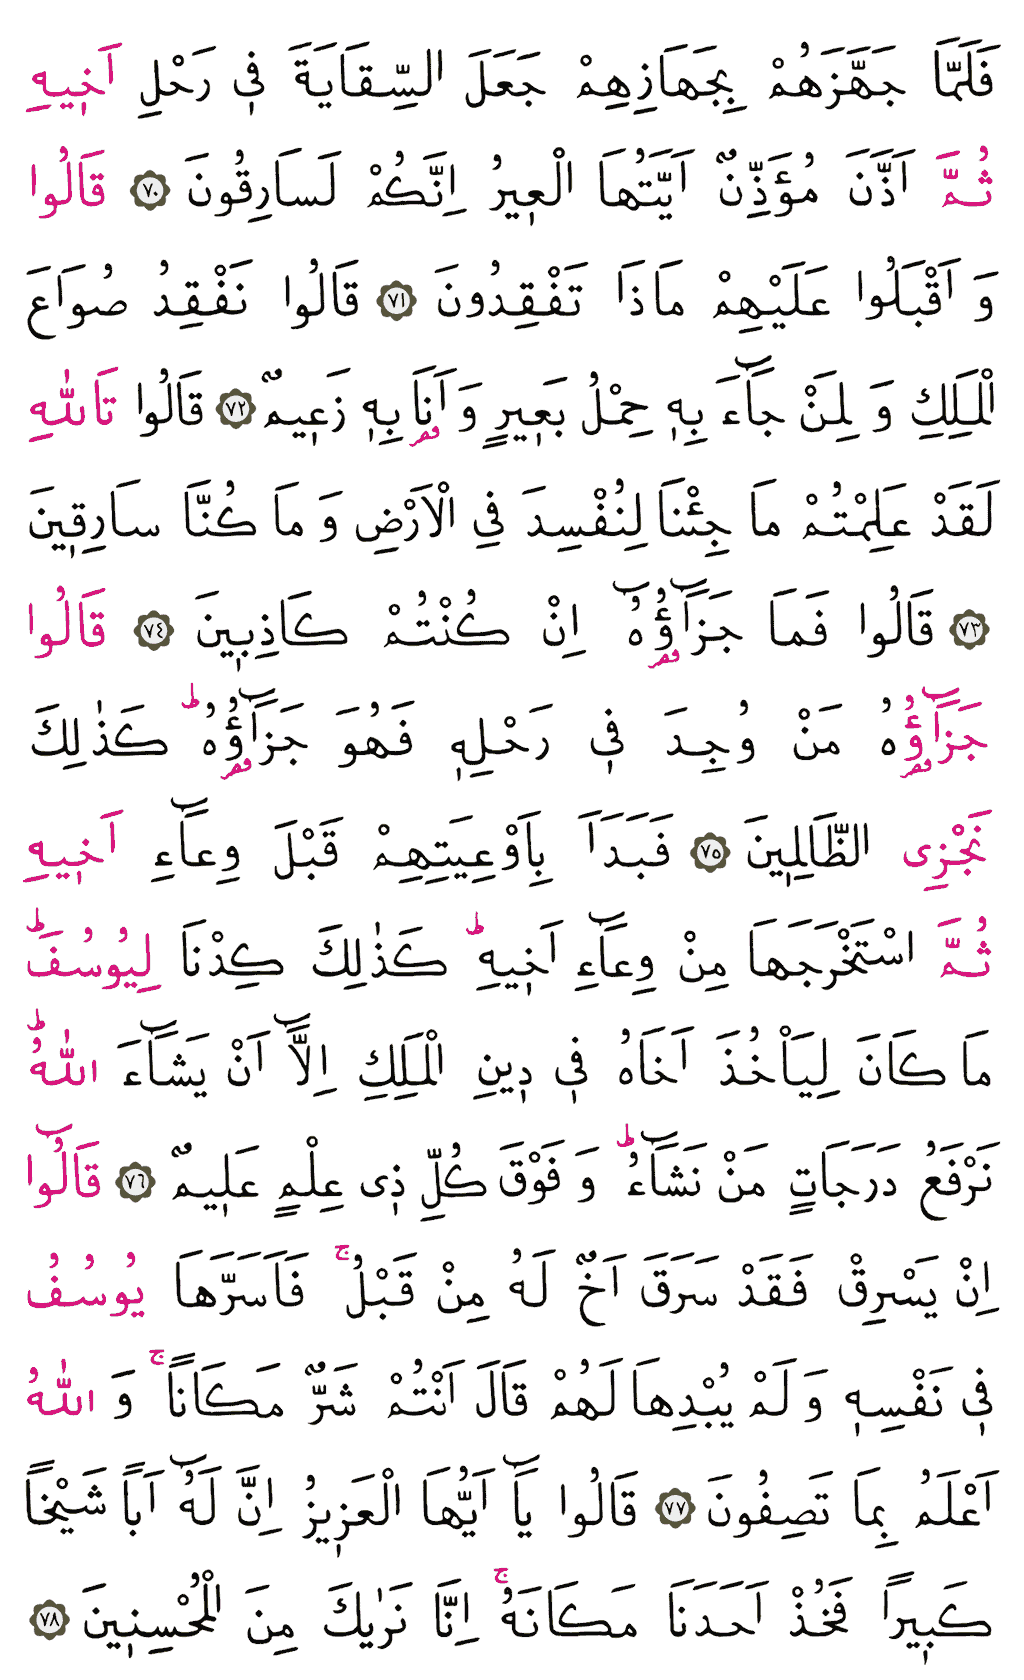 فَلَمَّا جَهَّزَهُمْ بِجَهَازِهِمْ جَعَلَ السِّقَايَةَ فٖي رَحْلِ اَخٖيهِ
ثُمَّ اَذَّنَ مُؤَذِّنٌ اَيَّتُهَا الْعٖيرُ اِنَّكُمْ لَسَارِقُونَ ﴿٧٠﴾ قَالُوا
وَ اَقْبَلُوا عَلَيْهِمْ مَاذَا تَفْقِدُونَ ﴿٧١﴾ قَالُوا نَفْقِدُ صُوَاعَ
الْمَلِكِ وَ لِمَنْ جَٓاءَ بِهٖ حِمْلُ بَعٖيرٍ وَ اَنَا بِهٖ زَعٖيمٌ ﴿٧٢﴾ قَالُوا تَاللّٰهِ
لَقَدْ عَلِمْتُمْ مَا جِئْنَا لِنُفْسِدَ فِي الْاَرْضِ وَ مَا كُنَّا سَارِقٖينَ
﴿٧٣﴾ قَالُوا فَمَا جَزَٓاؤُ۬هُٓ اِنْ كُنْتُمْ كَاذِبٖينَ ﴿٧٤﴾ قَالُوا
جَزَٓاؤُ۬هُ مَنْ وُجِدَ فٖي رَحْلِهٖ فَهُوَ جَزَٓاؤُ۬هُ ؕ كَذٰلِكَ
نَجْزِى الظَّالِمٖينَ ﴿٧٥﴾ فَبَدَاَ بِاَوْعِيَتِهِمْ قَبْلَ وِعَٓاءِ اَخٖيهِ
ثُمَّ اسْتَخْرَجَهَا مِنْ وِعَٓاءِ اَخٖيهِ ؕ كَذٰلِكَ كِدْنَا لِيُوسُفَ ؕ
مَا كَانَ لِيَاْخُذَ اَخَاهُ فٖي دٖينِ الْمَلِكِ اِلَّٓا اَنْ يَشَٓاءَ اللّٰهُ ؕ
نَرْفَعُ دَرَجَاتٍ مَنْ نَشَٓاءُ ؕ وَ فَوْقَ كُلِّ ذٖى عِلْمٍ عَلٖيمٌ ﴿٧٦﴾ قَالُٓوا
اِنْ يَسْرِقْ فَقَدْ سَرَقَ اَخٌ لَهُ مِنْ قَبْلُ ۚ فَاَسَرَّهَا يُوسُفُ
فٖي نَفْسِهٖ وَ لَمْ يُبْدِهَا لَهُمْ قَالَ اَنْتُمْ شَرٌّ مَكَانًا ۚ وَ اللّٰهُ
اَعْلَمُ بِمَا تَصِفُونَ ﴿٧٧﴾ قَالُوا يَٓا اَيُّهَا الْعَزٖيزُ اِنَّ لَهُٓ اَبًا شَيْخًا
كَبٖيرًا فَخُذْ اَحَدَنَا مَكَانَهُ ۚ اِنَّا نَرٰيكَ مِنَ الْمُحْسِنٖينَ ﴿٧٨﴾